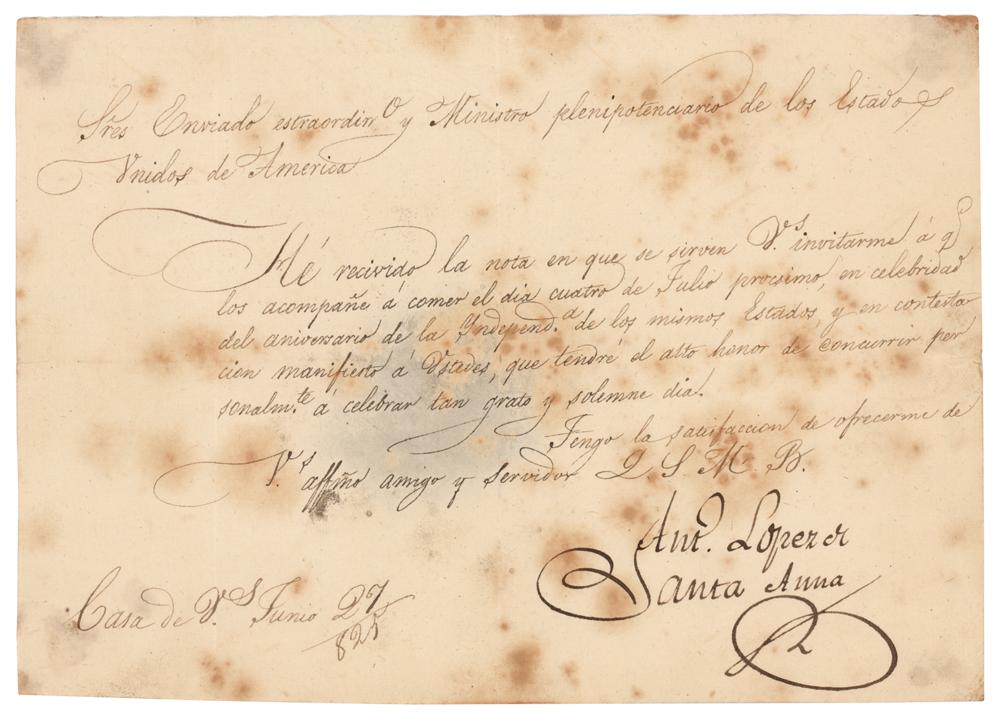 Sres Enviado estraordin.º y Ministro plenipotenciario de los Estados
Vnidos de America
Hé recivido la nota en que se sirven V.s invitarme á q.e
los acompañe á comer el dia cuatro de Julio procsimo, en celebridad
del aniversario de la Independ.a de los mismos Estados, y en contesta
cion manifiesto á Vstedes, que tendré el alto honor de concurrir per
sonalm.te á celebrar tan grato y solemne dia.
Tengo la satisfaccion de ofrecerme de
V.s affmo amigo y servidor Q. S. M. B.
Ant. Lopez de
Santa Anna
Casa de V.s Junio 27
825